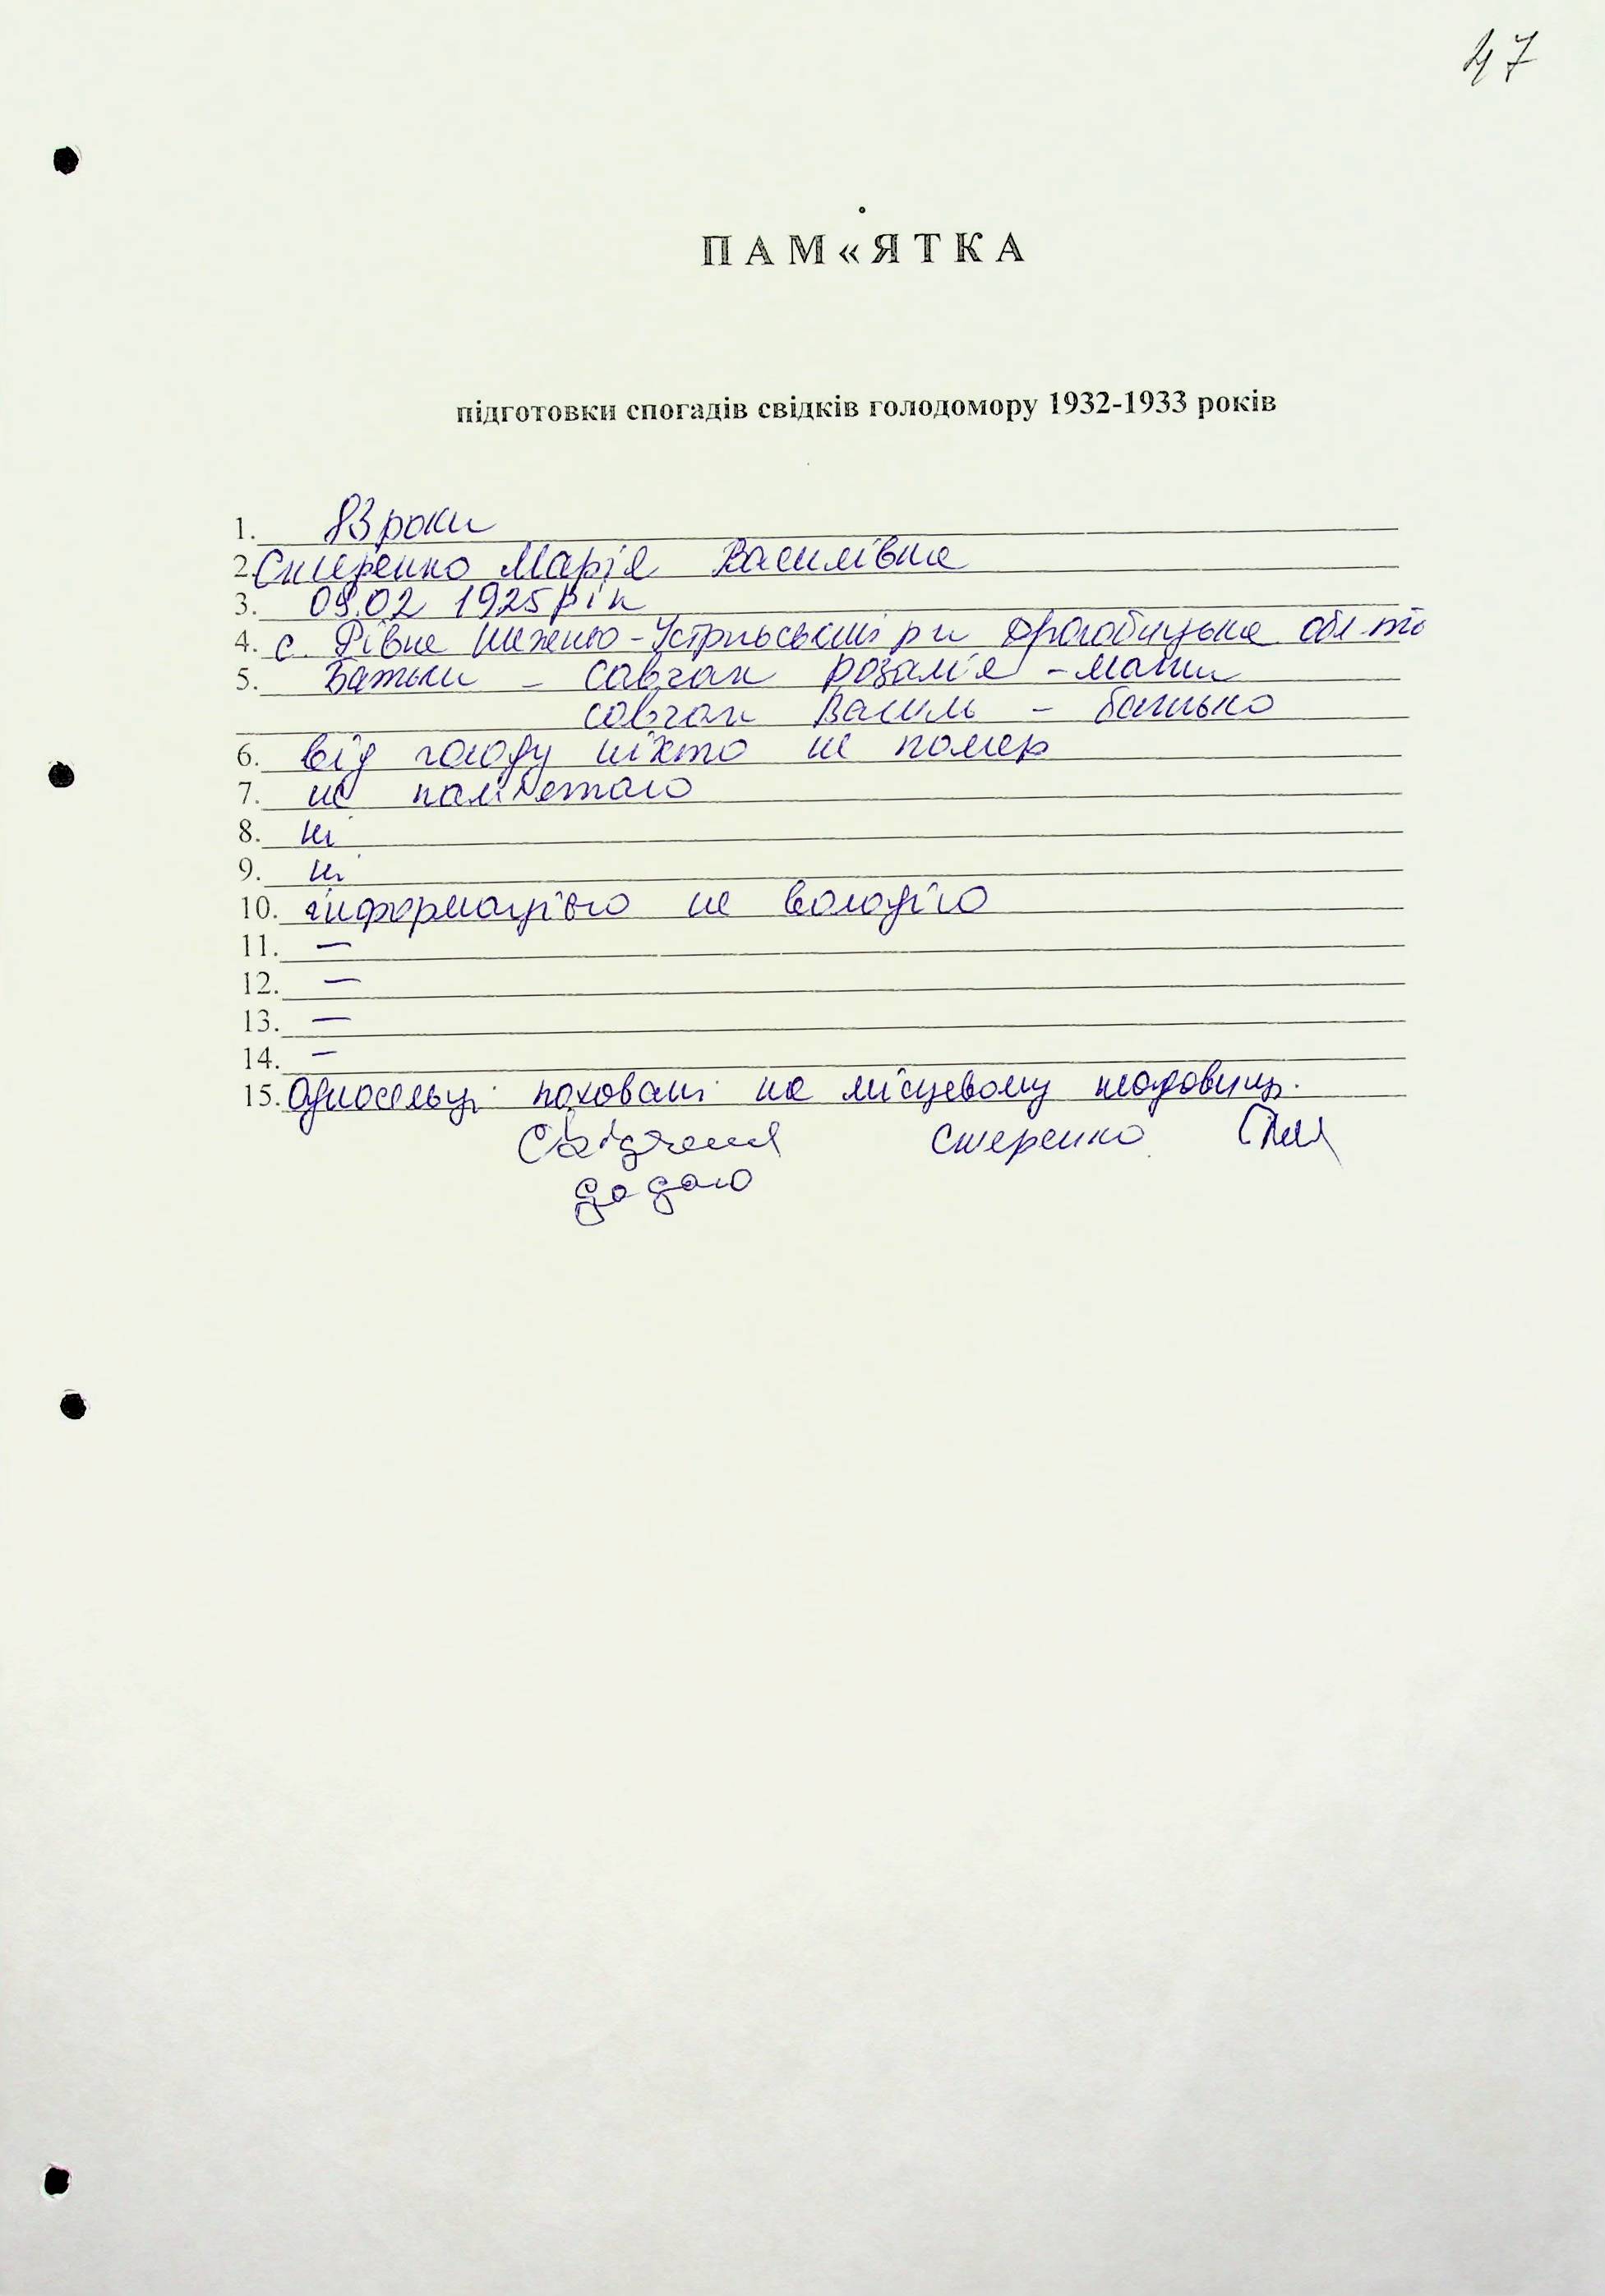 47
ПАМ«ЯТКА
підготовки спогадів свідків голодомору 1932-1933 років
1. 83 роки
2. Снігренко Марія Василівна
3. 09.02 1925 рік
4. с. Рівне Нижньо-Устрикський р-н Дрогобицька обл.
5. Батьки – Савчак Розалія – мати
Савчак Василь – батько
6. від голоду ніхто не помер
7. не пам'ятаю
8. ні
9. ні
10. інформацією не володію
11. –
12. –
13. –
14. –
15. Односельці поховані на місцевому кладовищі.
Свідчення
додаю